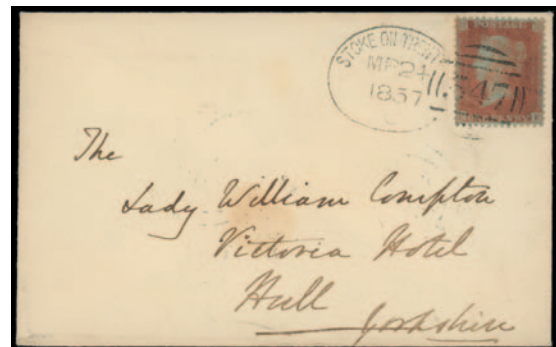 STOKE ON TRENT
MR 24
1857
547
The
Lady William Compton
Victoria Hotel
Hull
Yorkshire